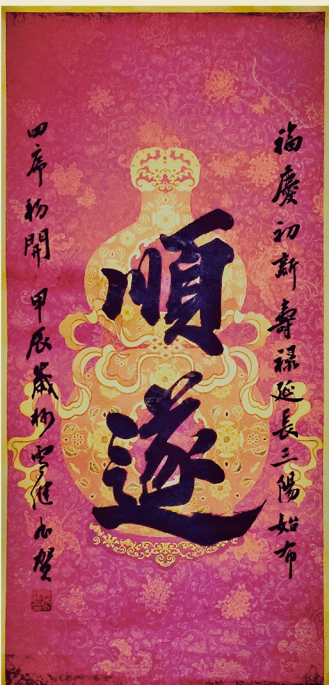 福慶初新壽祿延長三陽始布
順遂
四序初開 甲辰歲杪雪健書賀